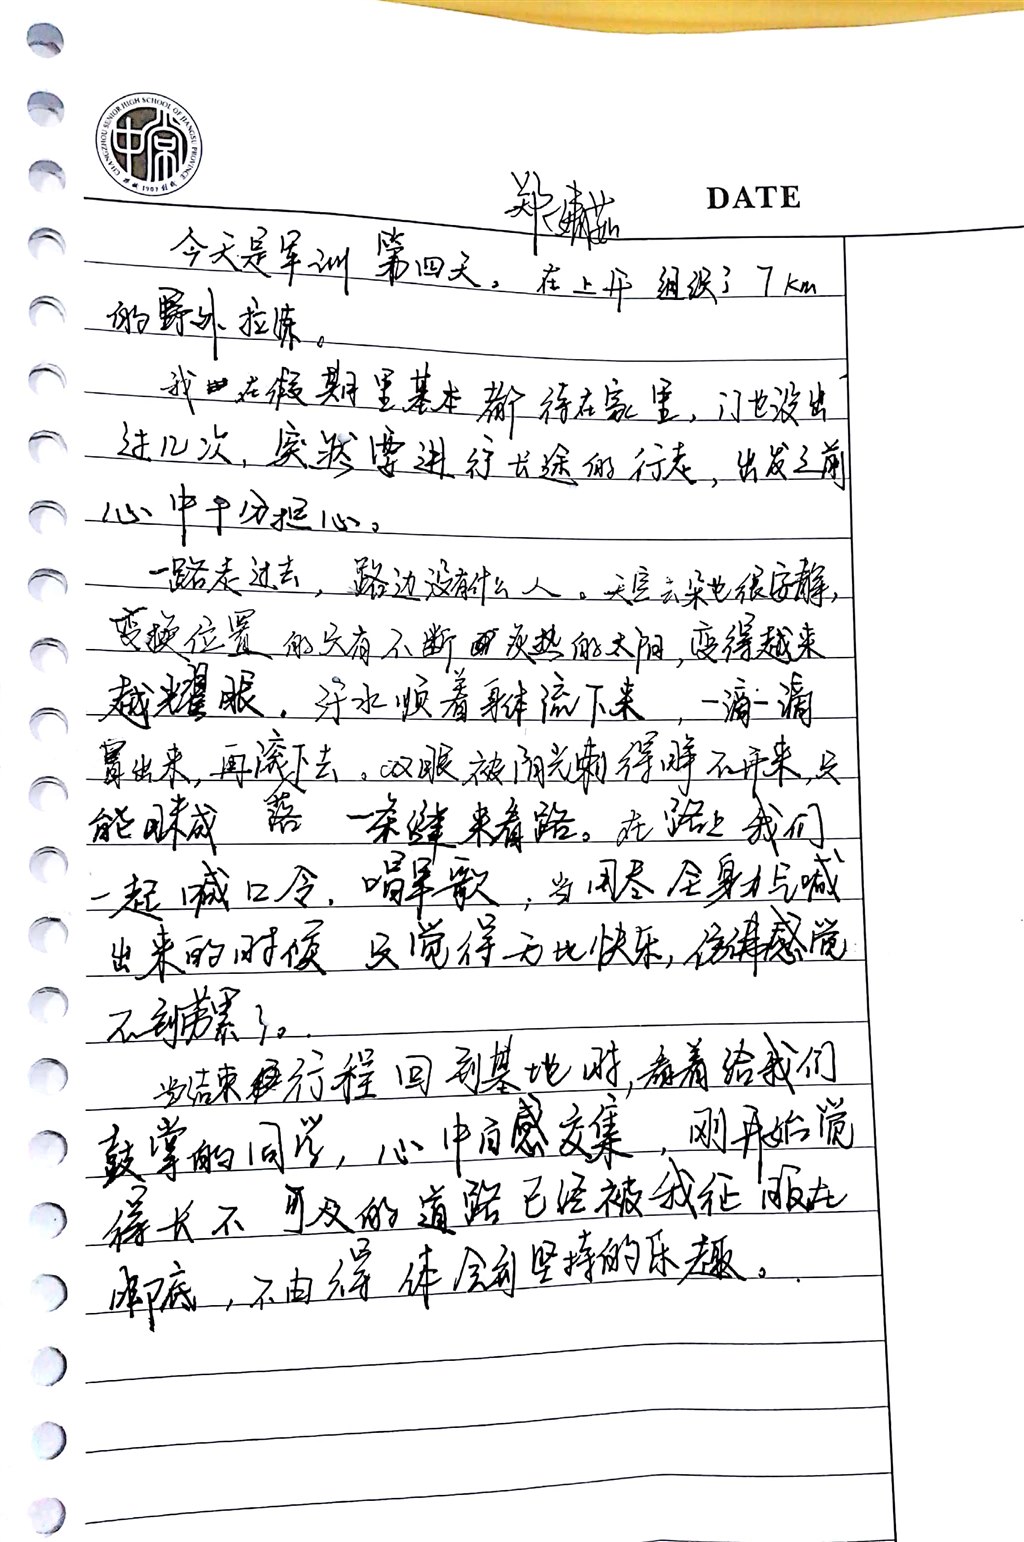 CHANGZHOU SENIOR HIGH SCHOOL OF JIANGSU PROVINCE
1907
DATE
今天是军训第四天。在上午组织了7km
的野外拉练。
我在假期里基本都待在家里，门也没出
过几次，突然要进行长途的行走，出发之前
心中十分担心。
一路走过去，路边没有什么人。天空云朵也很安静，
变换位置的只有不断炙热的太阳，变得越来
越耀眼。汗水顺着身体流下来，一滴一滴
冒出来，再滚下去。双眼被阳光刺得睁不开来，只
能眯成 落 一条缝来看路。在路上我们
一起喊口令，唱军歌，当用尽全身力气喊
出来的时候 只觉得无比快乐，仿佛感觉
不到劳累了。
当结束行程回到基地时，看着给我们
鼓掌的同学，心中百感交集，刚开始觉
得长不可及的道路已经被我征服在
脚底，不由得体会到坚持的乐趣。